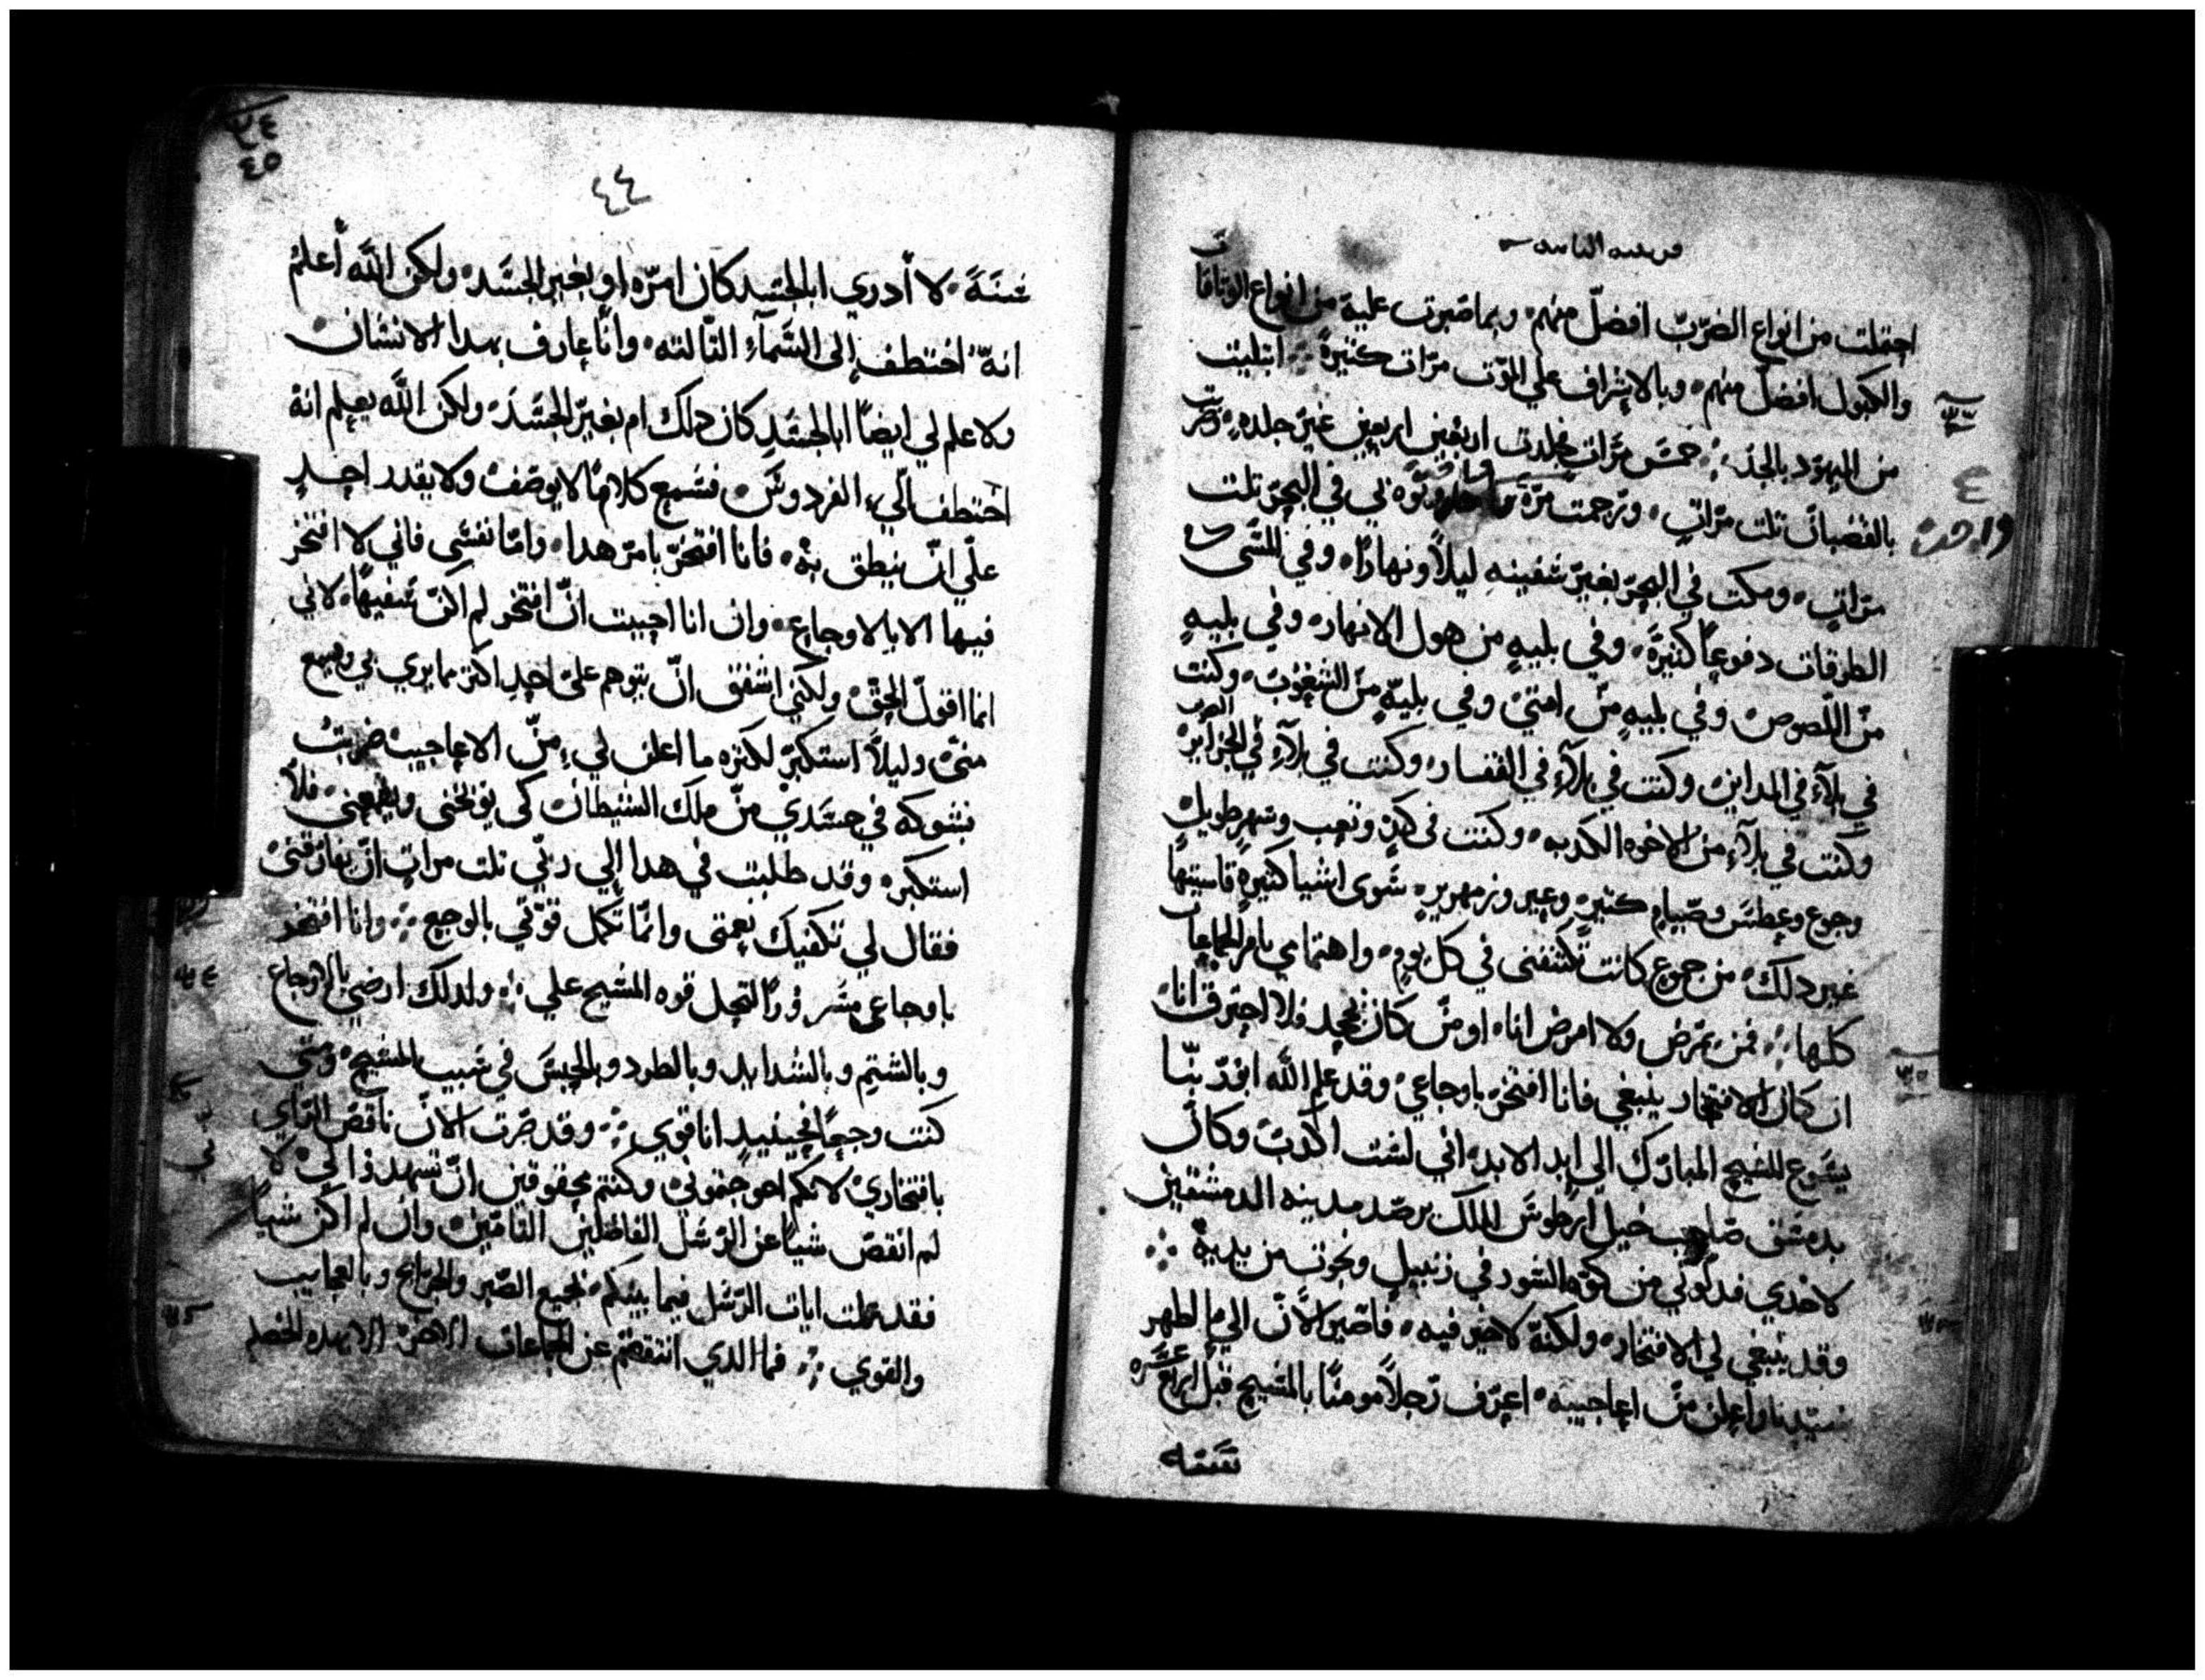 قرنتيه التانيه
احتملت من انواع الضرب افضل منهم وبما صبرت عليه من انواع الوتاقات
والكبول افضل منهم وبالاشراف علي الموت مرات كتيرة ابتليت
من اليهود بالجلد خمس مرات جلدت اربعين اربعين غير جلده وضربت
بالقضبان تلت مرات ورجمت مرة وتوه بي في البحر تلت
مرات ومكت في البحر بغير سفينه ليلاً ونهاراً وفي المشي
الطرقات دفوعاً كتيرة وفي بليه من هول الانهار وفي بليه
من اللصوص وفي بليه من امتي وفي بلية من الشعوب وكنت
في بلآء في المداين وكنت في بلآء في القفار وكنت في بلآء في الجزاير البحر
وكنت في بلآء من الاخوه الكدبه وكنت في كد وتعب وسهر طويل
وجوع وعطش وصيام كتير وعري وزمهرير سوى اشيا كتيرة قاسيتها
غير دلك من جموع كانت تكتنفني في كل يوم واهتمامي بامر الجماعات
كلها فمن يمرض ولا امرض انا او من كان يجحد ولا احترق انا
ان كان الافتخار ينبغي فانا افتخر باوجاعي وقد علم الله ابو ربنا
يسوع المسيح المبارك الي ابد الابد اني لست اكدب وكان
بدمشق صاحب خيل ارطوس الملك يرصد مدينه الدمشقيين
لاخدي فدلوني من كوة السور في زنبيل ونجوت من يديه
وقد ينبغي لي الافتخار ولكنه لا خير فيه فاصير الان الي ما اظهر
سيدنا واعلن من اعاجيبه اعرف رجلاً مومناً بالمسيح قبل اربع عشره
سنه
٣٣
٤
واحده
٢٤
٤٥
٤٤
سنة لا أدري ابالجسد كان امره او بغير الجسد ولكن الله أعلم
انه اختطف إلى السمآء التالته وانا عارف بهدا الانسان
ولا علم لي ايضاً ابالجسد كان دلك ام بغير الجسد ولكن الله يعلم انه
اختطف الي الفردوس فسمع كلاماً لا يوصف ولا يقدر احد
علي ان ينطق به فانا افتخر بامر هدا واما نفسي فاني لا افتخر
فيها الا بالاوجاع وان انا احببت ان افتخر لم اكن سفيهاً لاني
انما اقول الحق ولكني اشفق ان يتوهم علي احد اكتر مما يري بي ويسمع
مني وليلا استكبر لكتره ما اعلن لي من الاعاجيب ضربت
بشوكه في جسدي من ملك الشيطان كي يوبخني ويقمعني فلا
استكبر وقد طلبت في هدا إلي ربي تلت مرات ان يفارقني
فقال لي تكفيك نعمتى وانما تكمل قوتي بالوجع وانا افتخر
باوجاعي مسروراً لتحل قوه المسيح علي ولدلك ارضي بالاوجاع
وبالشتم وبالشدايد وبالطرد وبالحبس في سبيب المسيح ومتي
كنت وجعاً فحينيد انا قوي وقد صرت الان ناقص الراي
بافتخاري لانكم احوجتموني وكنتم محقوقين ان تشهدوا لي لاني لا
لم انقص شياً عن الرسل الفاظلين التامين وان لم اكن شياً
فقد عملت ايات الرسل فيما بينكم بجميع الصبر والجرايح وبالعجايب
والقوي فما الدي انتقصتم عن الجماعات الاخر الا بهده الخصله